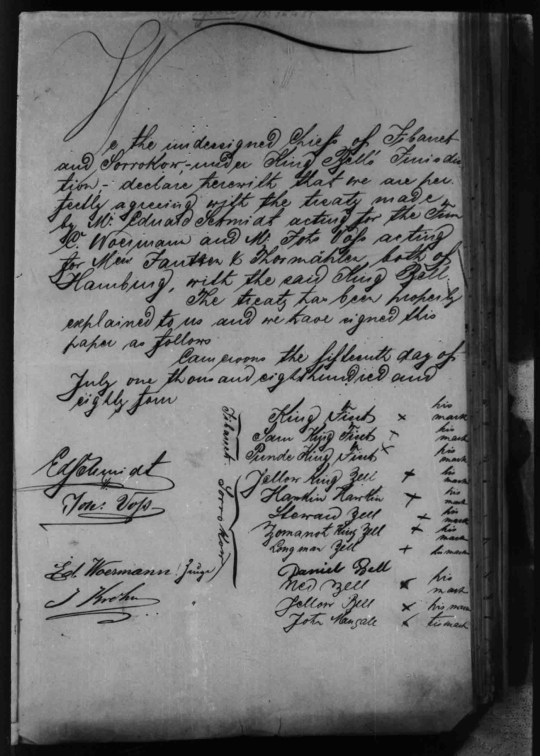 We the undersigned Chiefs of Tibanet
and Sorrokow, under King Bell's Jurisdic
tion, - declare herewith that we are per
fectly agreeing with the treaty made
by Mr. Eduard Schmidt acting for the Firm
C. Woermann and Mr. Johs Voss acting
for Mess Jantzen & Thormählen, both of
Hamburg, with the said King Bell
The treaty has been properly
explained to us and we have signed this
paper as follows
Cameroons the fifteenth day of
July one thousand eighthundred and
eighty four
Tibanet
King First x his mark
Sam King First x his mark
Pundo King First x his mark
Sorrokow
Jellow King Bell x his mark
Hawkin Hawkin x his mark
Steward Bell x his mark
Zomanot King Bell x his mark
Long man Bell x his mark
Daniel Bell
Ned Bell x his mark
Jellow Bell x his mark
John Mangale x his mark
Ed Schmidt
Johs Voss
Ed. Woermann (Zeuge)
J Krohn